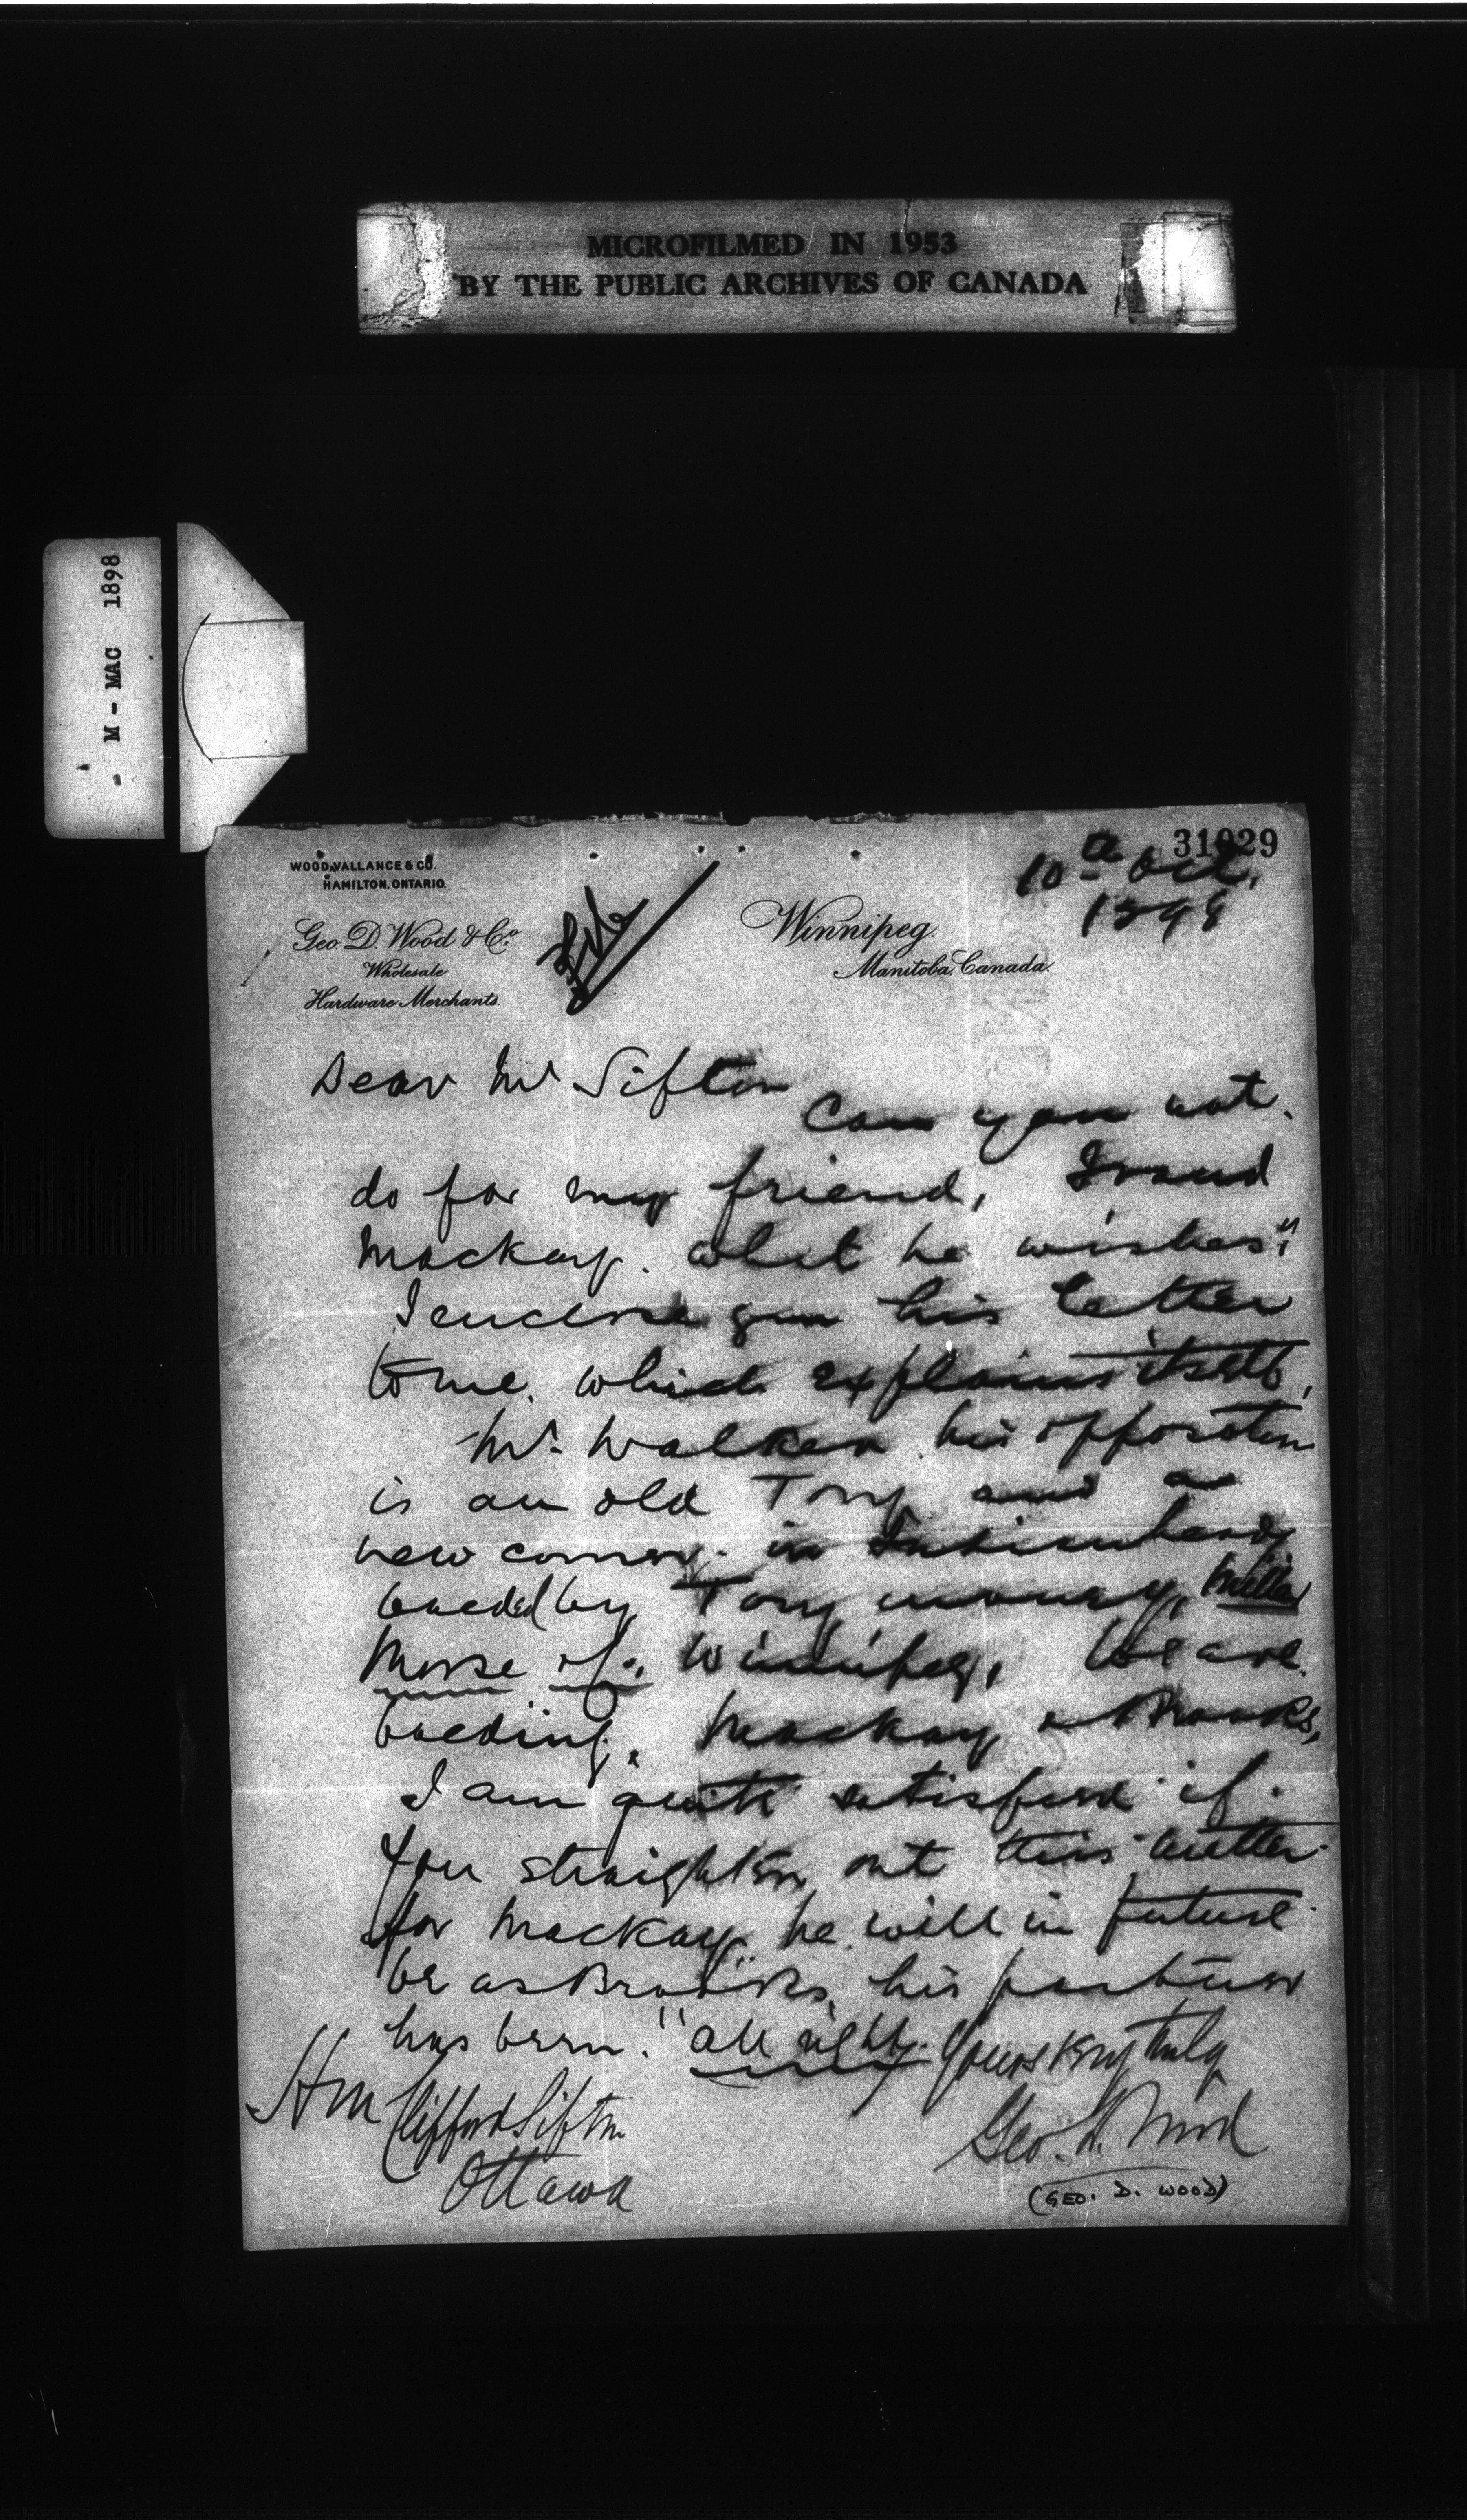 MICROFILMED IN 1953
BY THE PUBLIC ARCHIVES OF CANADA
- M - MAC 1898
31029
10th Oct.
1898
WOOD, VALLANCE & CO.
HAMILTON, ONTARIO.
Geo. D. Wood & Co.
Wholesale
Hardware Merchants
File
Winnipeg,
Manitoba, Canada.
Dear Mr Sifton
Can you not
do for my friend,
Mackay. what he wishes"
I enclose you his letter
to me. which explains itself,
Mr. Walker his opposition
is an old Tory and a
new comer. in Indian head
backed by Tory money, Miller
Morse of Winnipeg, We are
backing. Mackay & Brooks,
I am quite satisfied if
you straighten out this matter
for Mackay he will in future
be as Brooks, his partner
has been. "all right". Yours very truly
Geo. D. Wood
Hon Clifford Sifton
Ottawa
(GEO. D. WOOD)